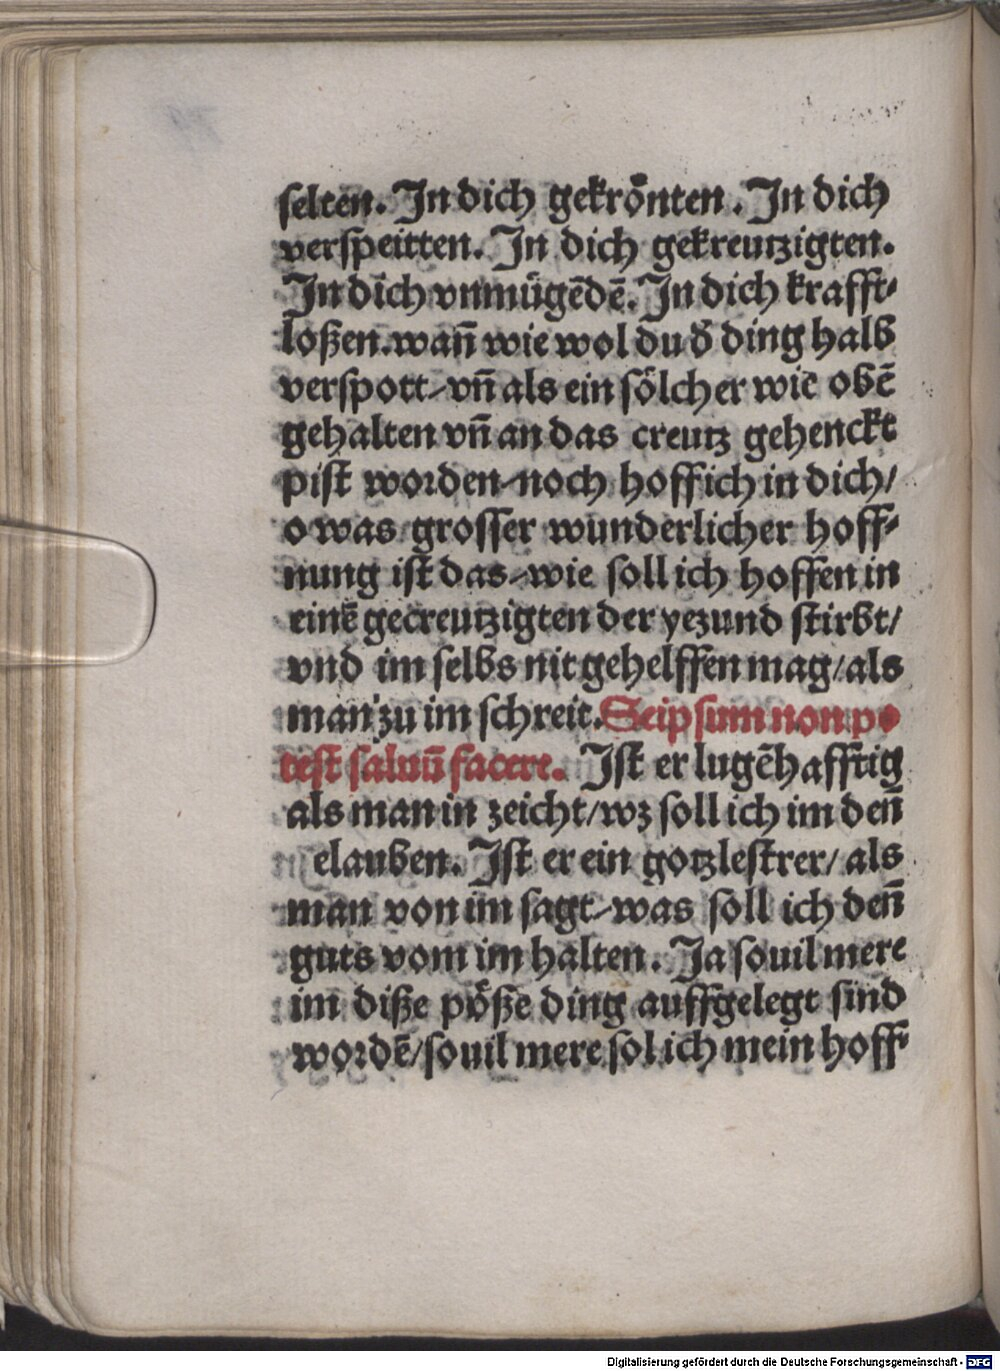 selten. In dich gekrönten. In dich
verspeitten. In dich gekreutzigten.
In dich vnmügēdē. In dich krafft⸗
loßen. wañ wie wol du ð ding halb
verspott/ vñ als ein sölcher wie obē
gehalten vñ an das creutz gehenckt
pist worden/ noch hoff ich in dich/
o was grosser wunderlicher hoff⸗
nung ist das/ wie soll ich hoffen in
einē gecreutzigten der yezund stirbt/
vnd im selbs nit gehelffen mag/ als
man zu im schreit. Seipsum non po
test saluū facere. Ist er lugēhafftig
als man in zeicht/ wz soll ich im deñ
elauben. Ist er ein gotzlestrer/ als
man von im sagt/ was soll ich deñ
guts vom im halten. Ja souil mere
im diße pöße ding auffgelegt sind
wordē/ souil mere sol ich mein hoff⸗
Digitalisierung gefördert durch die Deutsche Forschungsgemeinschaft - DFG